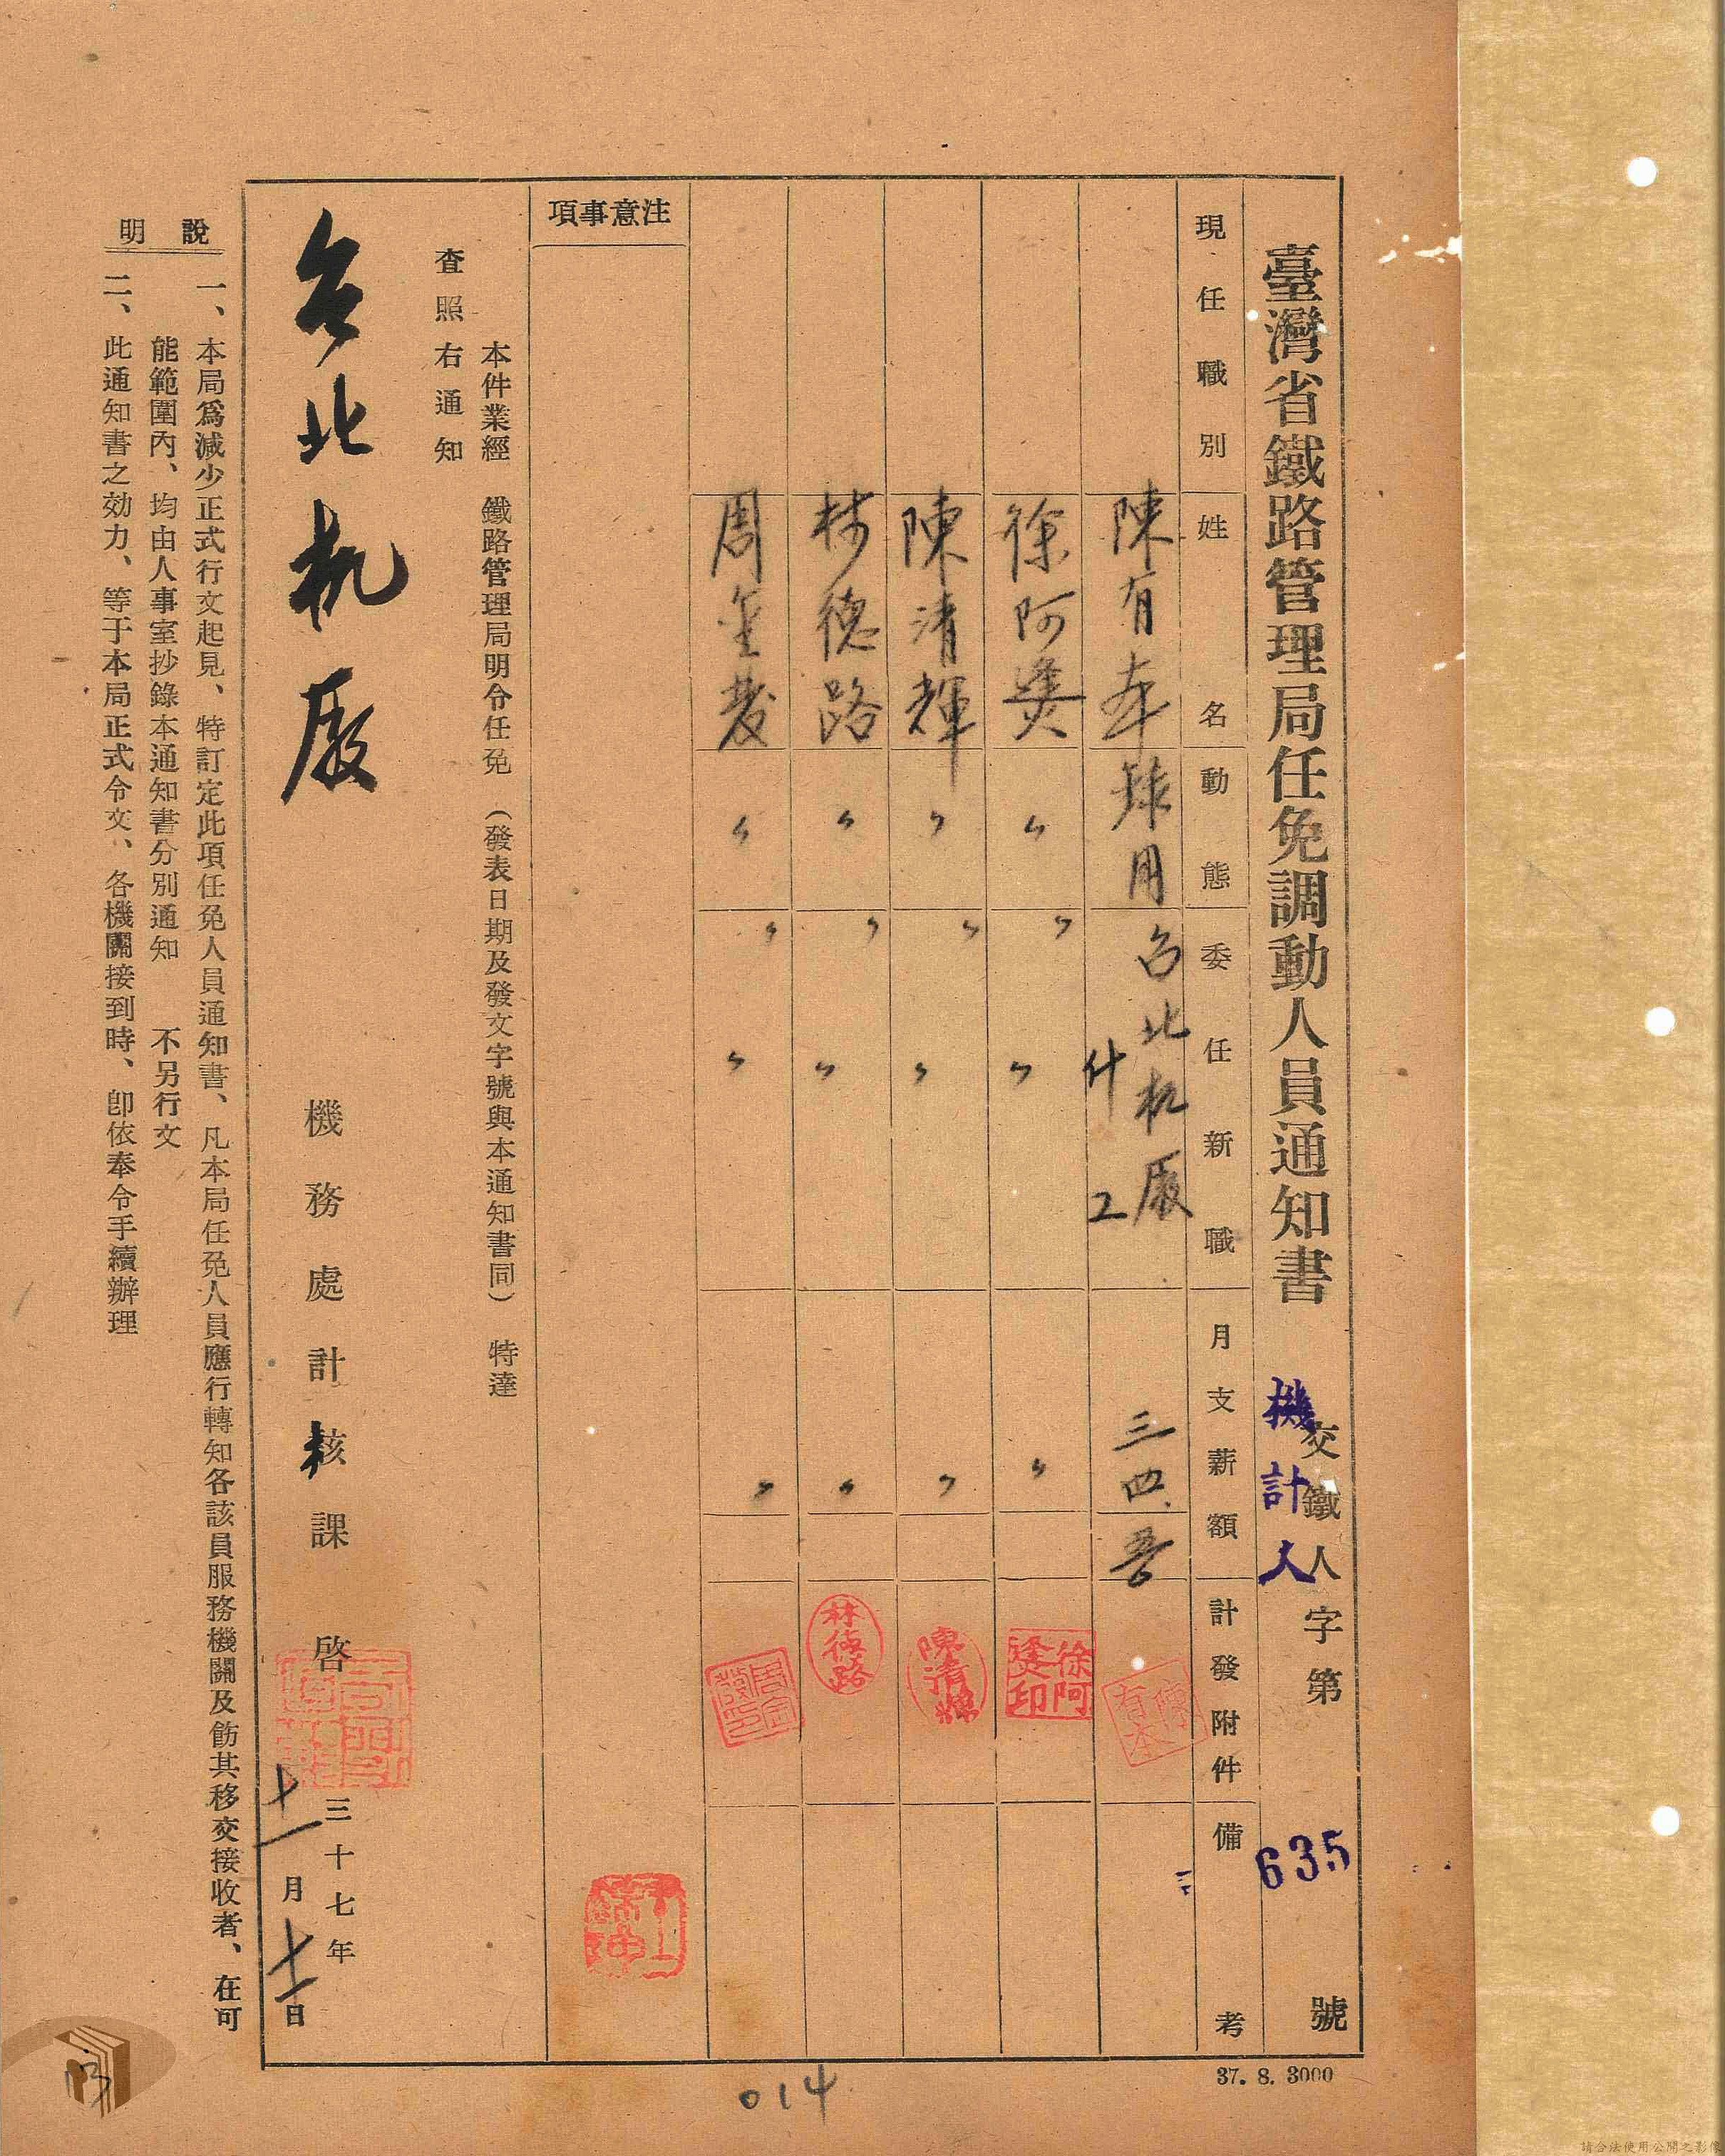 臺灣省鐵路管理局任免調動人員通知書
交鐵人字第 號
機計人
635
現任職別
姓名
動態
委任新職
月支薪額
計發附件
備考
陳有本 錄用 台北机廠 什工 三四.
徐阿逢 〃 〃 〃 〃
陳清輝 〃 〃 〃 〃
林德路 〃 〃 〃 〃
周金發 〃 〃 〃 〃
徐阿逢印
陳清輝
林德路
注意事項
本件業經 鐵路管理局明令任免 (發表日期及發文字號與本通知書同) 特達
查照右通知
台北机廠
機務處計核課 啓
三十七年
十一月十一日
說明
一、本局爲減少正式行文起見、特訂定此項任免人員通知書、凡本局任免人員應行轉知各該員服務機關及飭其移交接收者、在可
能範圍內、均由人事室抄錄本通知書分別通知 不另行文
二、此通知書之効力、等于本局正式令文、各機關接到時、卽依奉令手續辦理
37. 8. 3000
014
請合法使用公開之影像